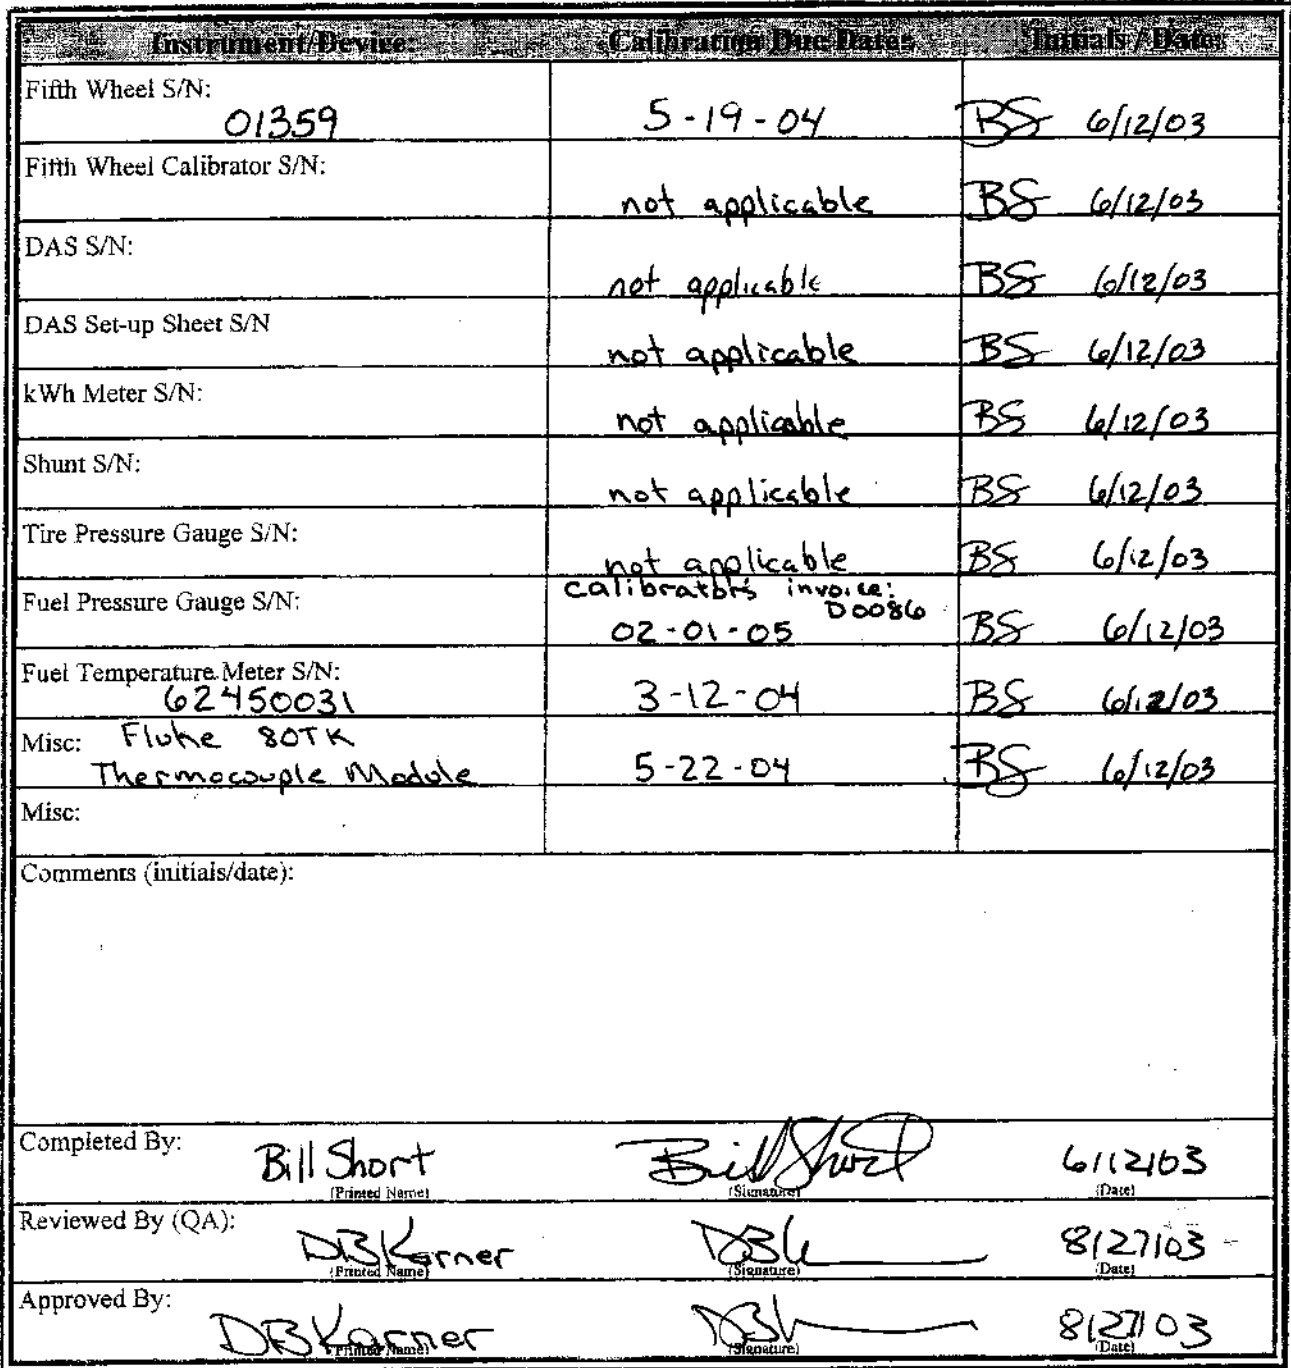 Instrument/Device: Calibration Due Date: Initials / Date:
Fifth Wheel S/N:
01359 5-19-04 BS 6/12/03
Fifth Wheel Calibrator S/N:
not applicable BS 6/12/03
DAS S/N:
not applicable BS 6/12/03
DAS Set-up Sheet S/N
not applicable BS 6/12/03
kWh Meter S/N:
not applicable BS 6/12/03
Shunt S/N:
not applicable BS 6/12/03
Tire Pressure Gauge S/N:
not applicable BS 6/12/03
Fuel Pressure Gauge S/N: calibrator's invoice:
D0086
02-01-05 BS 6/12/03
Fuel Temperature Meter S/N:
62450031 3-12-04 BS 6/12/03
Misc: Fluke 80TK
Thermocouple Module 5-22-04 BS 6/12/03
Misc:
Comments (initials/date):
Completed By: Bill Short Bill Short 6/12/03
(Printed Name) (Signature) (Date)
Reviewed By (QA): DB Karner 8/27/03
(Printed Name) (Signature) (Date)
Approved By: DB Karner 8/27/03
(Printed Name) (Signature) (Date)